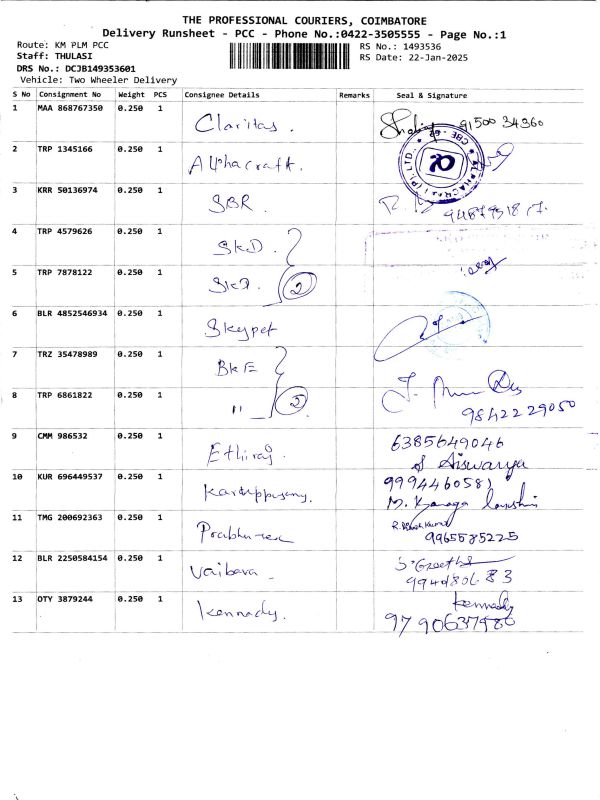 THE PROFESSIONAL COURIERS, COIMBATORE
Delivery Runsheet - PCC - Phone No.:0422-3505555 - Page No.:1
Route: KM PLM PCC
RS No.: 1493536
Staff: THULASI
RS Date: 22-Jan-2025
DRS No.: DCJB149353601
Vehicle: Two Wheeler Delivery
S No Consignment No Weight PCS Consignee Details Remarks Seal & Signature
1 MAA 868767350 0.250 1 Claritas. 91500 34360
2 TRP 1345166 0.250 1 Alphacraft.
3 KRR 50136974 0.250 1 SBR.
4 TRP 4579626 0.250 1 SKD.
5 TRP 7878122 0.250 1 SKD. 2
6 BLR 4852546934 0.250 1 Skypet
7 TRZ 35478989 0.250 1 BKE
8 TRP 6861822 0.250 1 " 2 9842229050
9 CMM 986532 0.250 1 Ethiraj. 6385649046
Aiswarya
10 KUR 696449537 0.250 1 Karuppusamy. 9994460581
M. Kanaga Lakshmi
11 TMG 200692363 0.250 1 9965585225
12 BLR 2250584154 0.250 1 Vaibava S. Geetha
13 OTY 3879244 0.250 1 Kennady. Kennady
9790637980